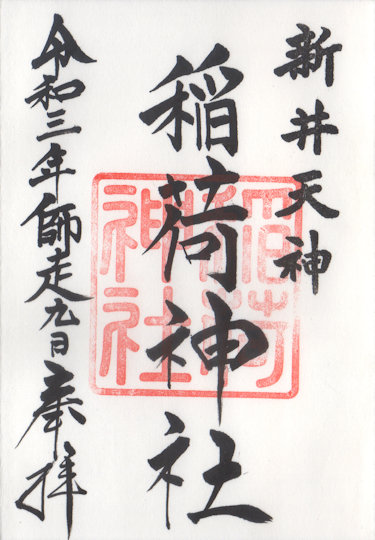 新井天神
稲荷神社
令和三年師走九日奉拝
稲荷
神社